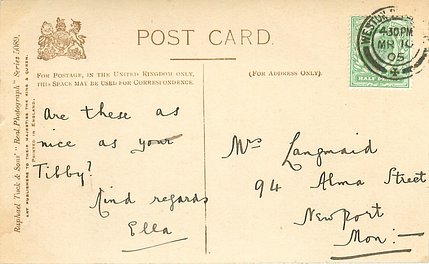 POST CARD.
FOR POSTAGE, IN THE UNITED KINGDOM ONLY,
THIS SPACE MAY BE USED FOR CORRESPONDENCE.
(FOR ADDRESS ONLY.)
Raphael Tuck & Sons' "Real Photograph" Series 5089.
ART PUBLISHERS TO THEIR MAJESTIES THE KING & QUEEN.
PRINTED IN ENGLAND.
4.30PM
MR 10
05
HALF
Are these as
nice as your
Tibby?
Kind regards
Ella
Mrs Langmaid
94 Alma Street
Newport
Mon:—